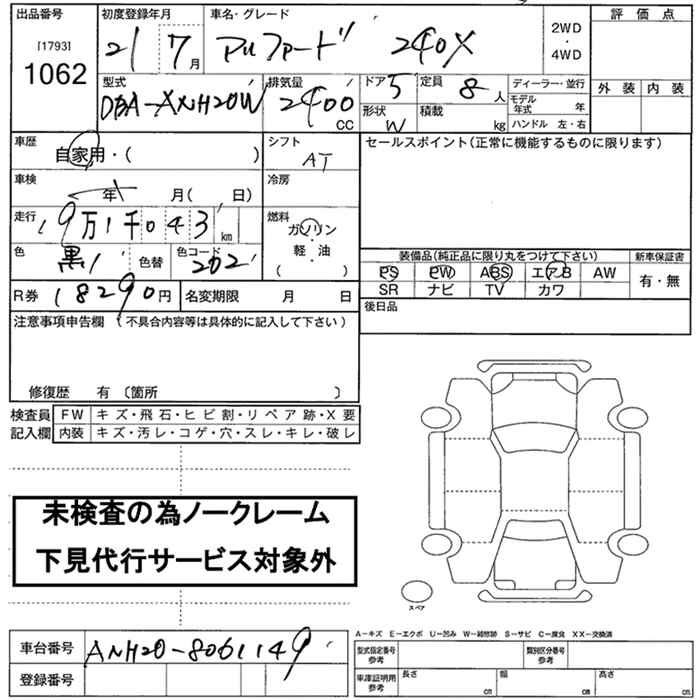 出品番号 初度登録年月 車名・グレード 評価点
[1793]
1062
21 7月 アルファード 240X 2WD・4WD
外装 内装
型式 排気量 ドア 定員 ディーラー・並行
DBA-ANH20W 2400CC 5 8人 モデル年式 年
形状 積載 ハンドル 左・右
W kg
車歴 シフト セールスポイント(正常に機能するものに限ります)
自家用・( ) AT
車検 冷房
年 月( 日)
走行 燃料
9万1千043km ガソリン
軽・油
( )
色 色替 色コード
黒 202
装備品(純正品に限り丸をつけて下さい) 新車保証書
PS PW ABS エアB AW 有・無
SR ナビ TV カワ
R券 18290円 名変期限 月 日
後日品
注意事項申告欄 (不具合内容等は具体的に記入して下さい)
修復歴 有〔箇所 〕
検査員 FW キズ・飛石・ヒビ割・リペア跡・X要
記入欄 内装 キズ・汚レ・コゲ・穴・スレ・キレ・破レ
未検査の為ノークレーム
下見代行サービス対象外
スペア
A-キズ E-エクボ U-凹み W-補修跡 S-サビ C-腐食 XX-交換済
車台番号 ANH20-8061149
型式指定番号 参考 類別区分番号 参考
登録番号
車庫証明用 参考 長さ cm 幅 cm 高さ cm